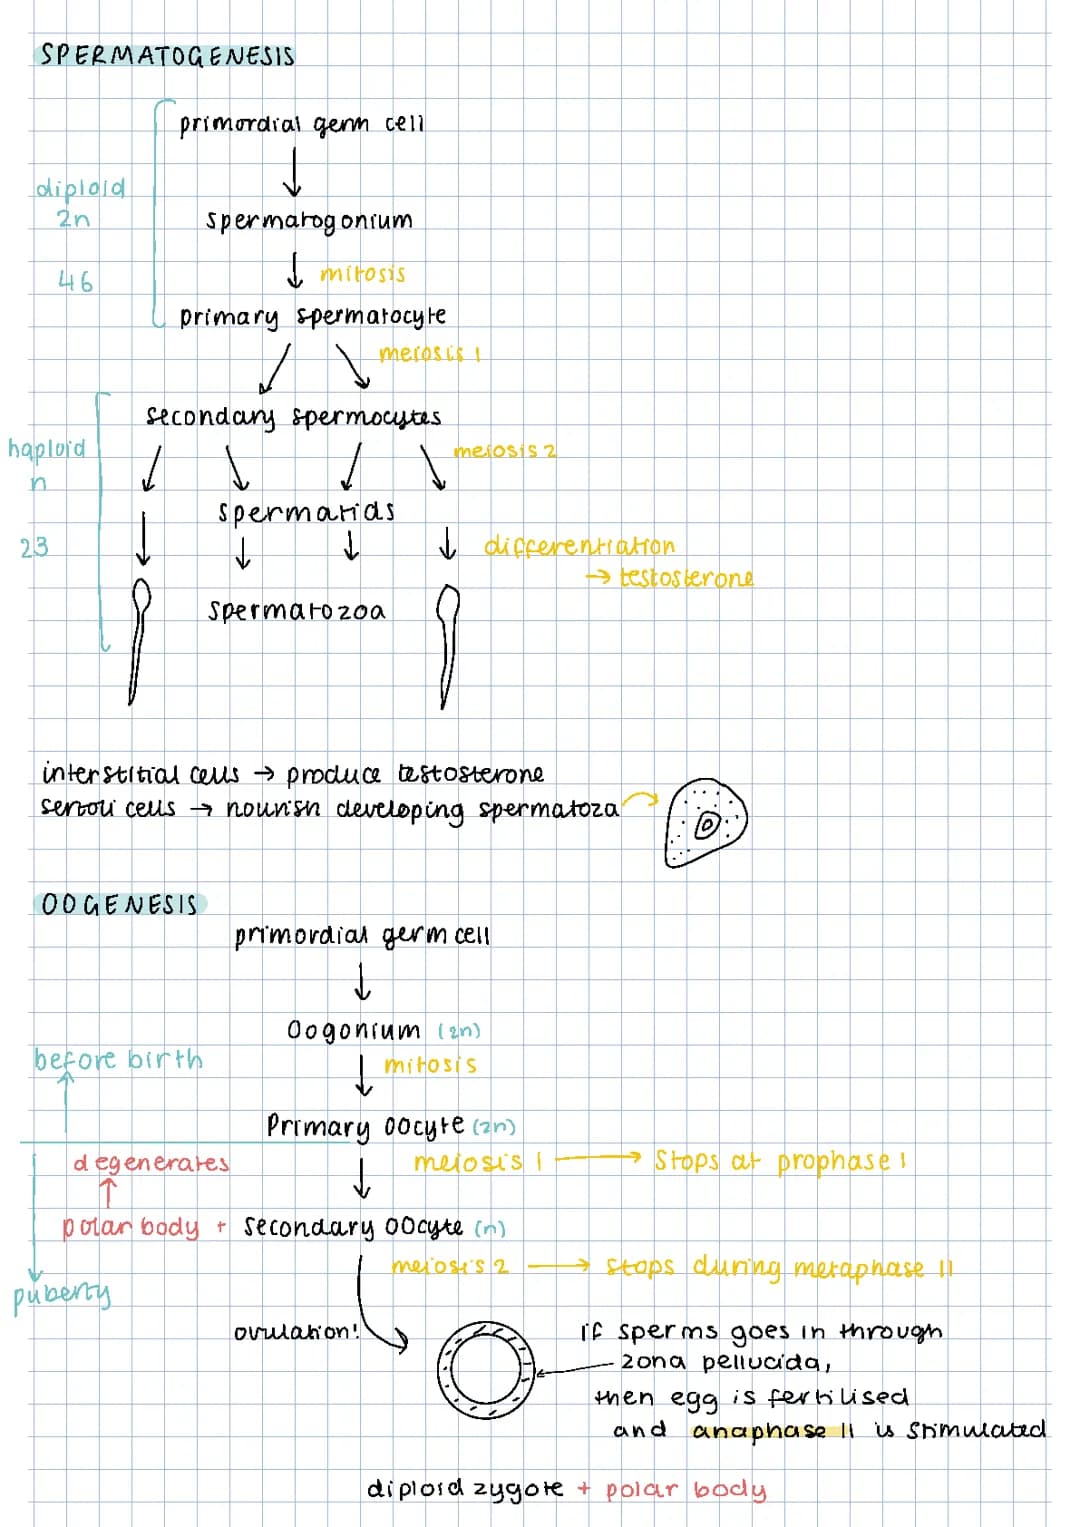 SPERMATOGENESIS
primordial germ cell
diploid
2n
spermatogonium
46
mitosis
primary spermatocyte
meiosis 1
secondary spermocytes
haploid
n
meiosis 2
spermatids
23
differentiation
→ testosterone
spermatozoa
interstitial cells → produce testosterone
sertoli cells → nourish developing spermatoza
OOGENESIS
primordial germ cell
Oogonium (2n)
before birth
mitosis
Primary oocyte (2n)
degenerates
meiosis 1 → stops at prophase 1
polar body + secondary oocyte (n)
meiosis 2 → stops during metaphase II
puberty
ovulation!
if sperms goes in through
zona pellucida,
then egg is fertilised
and anaphase II is stimulated
diploid zygote + polar body